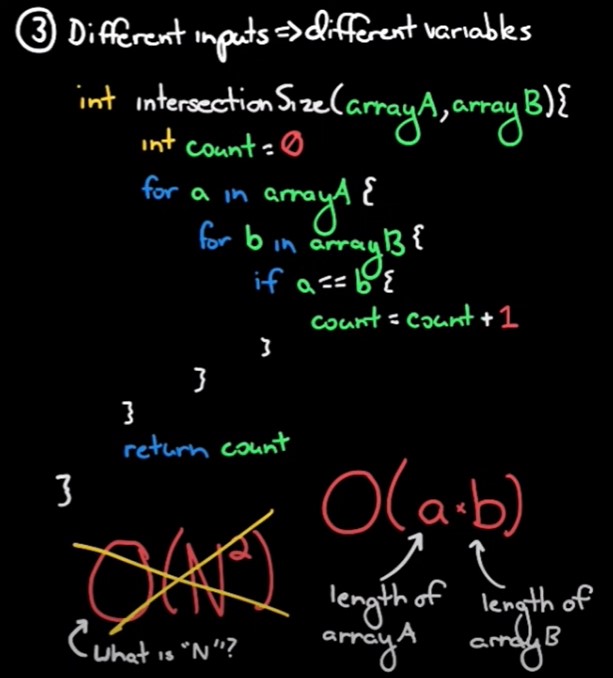 ③ Different inputs => different variables
int intersectionSize(arrayA, arrayB){
int count = 0
for a in arrayA {
for b in arrayB {
if a == b {
count = count + 1
}
}
}
return count
}
O(N²)
What is "N"?
O(a*b)
length of
arrayA
length of
arrayB